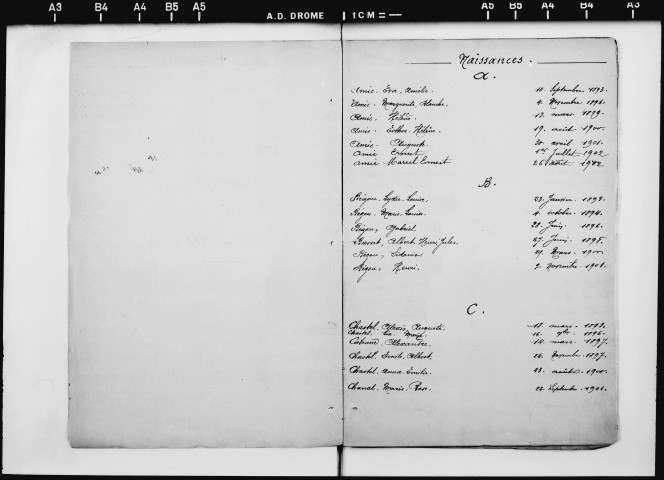 A3 B4 A4 B5 A5 A.D. DROME 1CM = A5 B5 A4 B4 A3
Naissances.
A.
Amic. Eva, Amélie. 10. Septembre 1893.
Amic. Marguerite, Blanche. 4. Novembre 1896.
Amic, Hélène. 13. mars 1899.
Amic. Esther, Hélène. 19. août 1900.
Amic. 30. avril 1901.
Amic Ernest 1er Juillet 1902
Amic Marcel Ernest 26 août 1902
B.
Lydie Louise. 23. Janvier 1893.
Marie Louise. 4. octobre 1894.
Gabriel. 28. Juin 1896.
Albert, Henri Jules. 27. Juin 1898.
Sidonie. mars 1900
Henri. 2. Novembre 1901.
C.
Chastel, Alexis, Auguste. 18. mars 1893.
Chastel. Marie 16. 9bre 1895.
Alexandre 14. mars 1897.
Chastel, Emile, Albert. 24. Novembre 1897.
Chastel Anna Emilie. 23. août 1900.
Marie, Rose. 22. Septembre 1901.